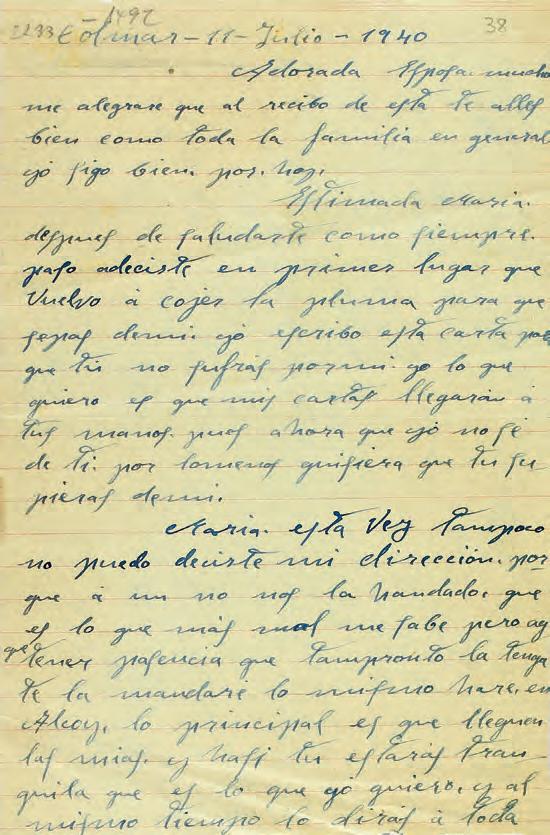 - 1492
1233 Colmar - 11 - Julio - 1940 38
Adorada Esposa. mucho
me alegrare que al recibo de esta te alles
bien como toda la familia en general
yó sigo bien. por. hoy.
Estimada Maria.
despues de saludarte como siempre.
paso adeciste en primer lugar que
Vuelvo á cojer la pluma para que
sepas demi. yó escribo esta carta por
que tú no sufras pormi. yo lo que
quiero es que mis cartas llegarán á
tus manos. pues ahora que yó no sé
de ti. por lomenos quisiera que tu su
pieras demi.
Maria. esta Vez tampoco
no puedo deciste mi dirección. por
que á un no nos la handado. que
es lo que más mal me sabe pero ay
que tener pasencia que tampronto la tenga
te la mandare lo mismo hare. en
Alcoy. lo principal es que lleguen
las mias. y hasi tu estarás tran
quila que es lo que yo quiero. y al
mismo tiempo lo dirás á toda